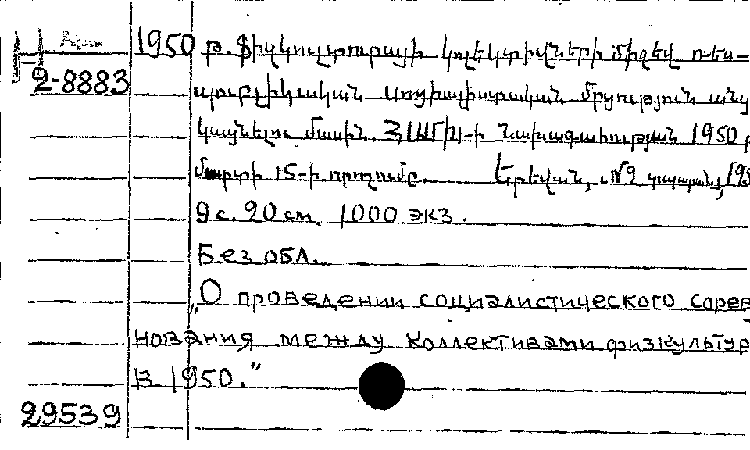 2-8883
1950 թ. ֆիզկուլտուրայի կոլեկտիվների միջեվ ռես-
պուբլիկական սոցիալիստական մրցություն անց
կացնելու մասին. ՀՍՍՌ Նախագահության 1950 թ
մարտի 15-ի որոշումը. Երեվան, №2 տպարան, 195
9 с. 20 см. 1000 экз.
Без обл.
„О проведении социалистического сорев
нования между коллективами физкультур
в 1950.”
29539